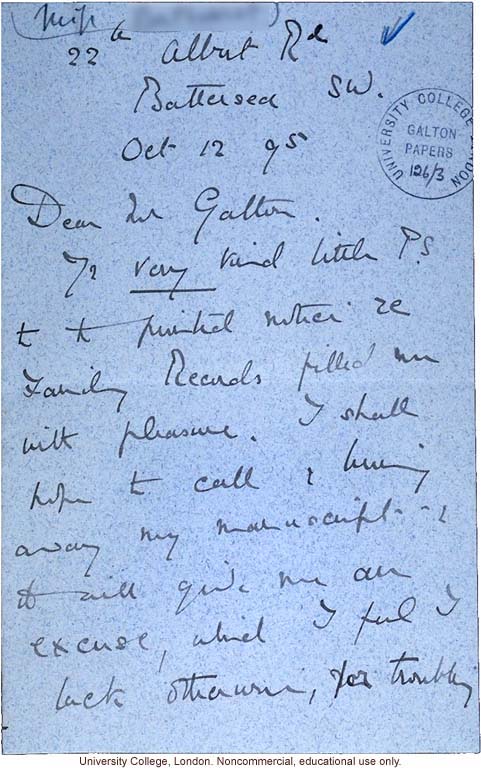 Miss
22a Albert Rd
Battersea SW.
Oct 12 95
UNIVERSITY COLLEGE LONDON
GALTON
PAPERS
126/3
Dear Mr Galton.
Yr very kind little P.S.
t t printed notice re
Family Records filled me
with pleasure. I shall
hope to call & bring
away my manuscript - &
it will give me an
excuse, which I feel I
lack otherwise, for troubling
University College, London. Noncommercial, educational use only.